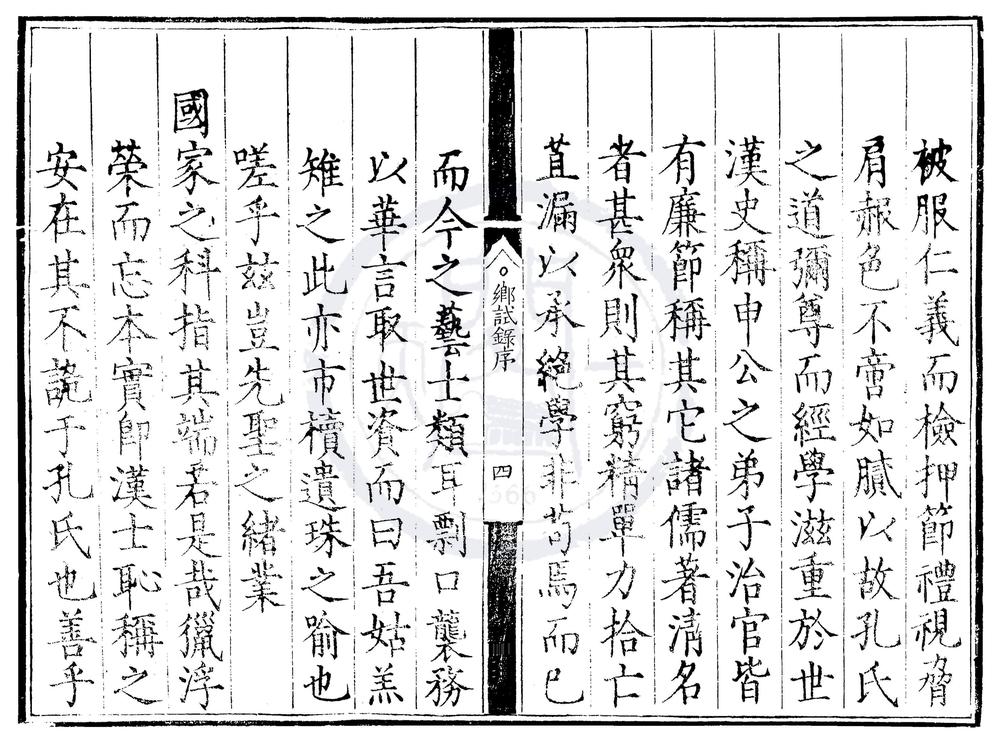 被服仁義而檢押節禮視脅
肩赧色不啻如膩以故孔氏
之道彌尊而經學滋重於世
漢史稱申公之弟子治官皆
有廉節稱其它諸儒著清名
者甚眾則其窮精單力拾亡
苴漏以承絕學非苟焉而已
鄉試錄序
四
而今之藝士類耳剽口襲務
以華言取世資而曰吾姑羔
雉之此亦市櫝遺珠之喻也
嗟乎玆豈先聖之緒業
國家之科指其端若是哉獵浮
榮而忘本實卽漢士恥稱之
安在其不詭于孔氏也善乎